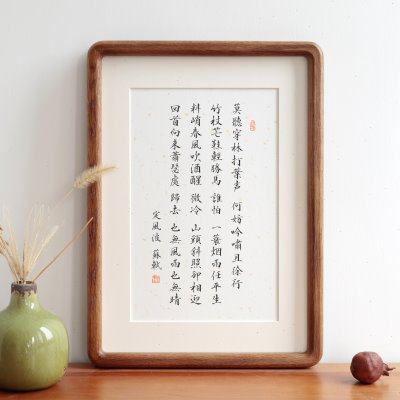 莫聽穿林打葉聲 何妨吟嘯且徐行
竹杖芒鞋輕勝馬 誰怕 一蓑烟雨任平生
料峭春風吹酒醒 微冷 山頭斜照卻相迎
回首向來蕭瑟處 歸去 也無風雨也無晴
定風波 蘇軾